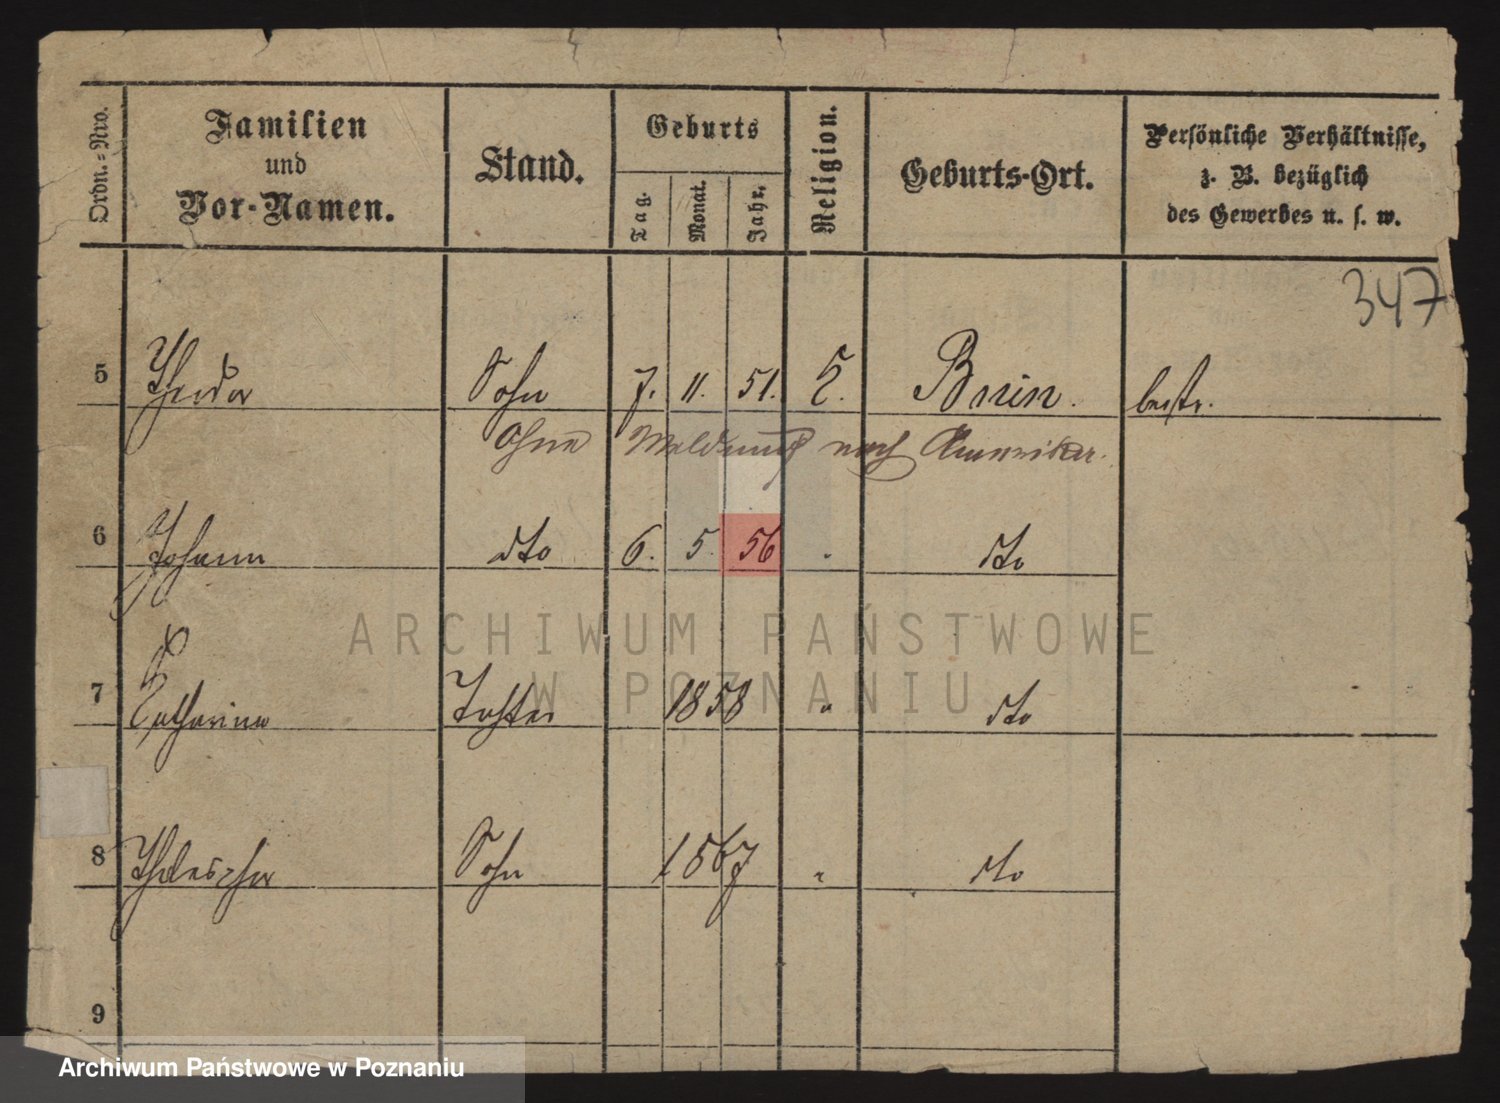 Ordn.-Nro. Familien und Vor-Namen. Stand. Geburts Tag. Monat. Jahr. Religion. Geburts-Ort. Persönliche Verhältnisse, z. B. bezüglich des Gewerbes u. s. w.
347
5 Theodor Sohn 7. 11. 51. Bnin.
Ohne Meldung nach Amerika.
6 Johann dto 6. 5. 56 " dto
ARCHIWUM PAŃSTWOWE
W POZNANIU
7 Catharina Tochter 1858 " dto
8 Sohn 1867 " dto
9
Archiwum Państwowe w Poznaniu